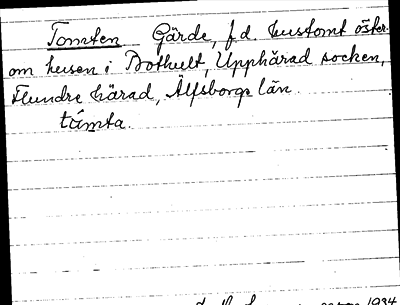 Tomten Gärde, f.d. hustomt öster
om husen i Bothult, Upphärad socken,
Flundre härad, Älfsborgs län.
tûmta.
1934